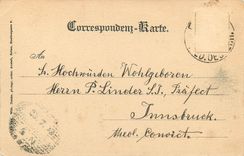 Correspondenz-Karte.
An
Sr. Hochwürden Wohlgeboren
Herrn P. Linder S.J., Präfect
Innsbruck.
Theol. Convict.